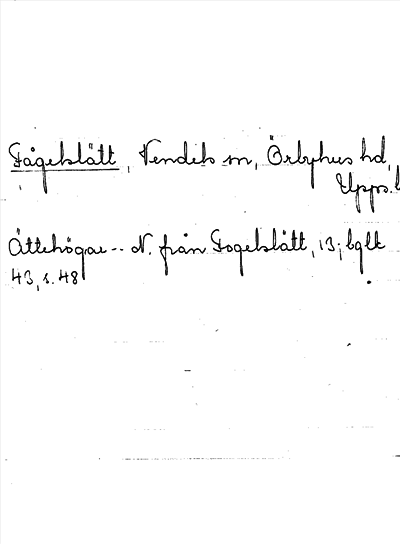 Fågelslätt, Vendels sn, Örbyhus hd,
Upps. l
Ättehögar -- N. från Fogelslätt, 13; bglt
43, s. 48